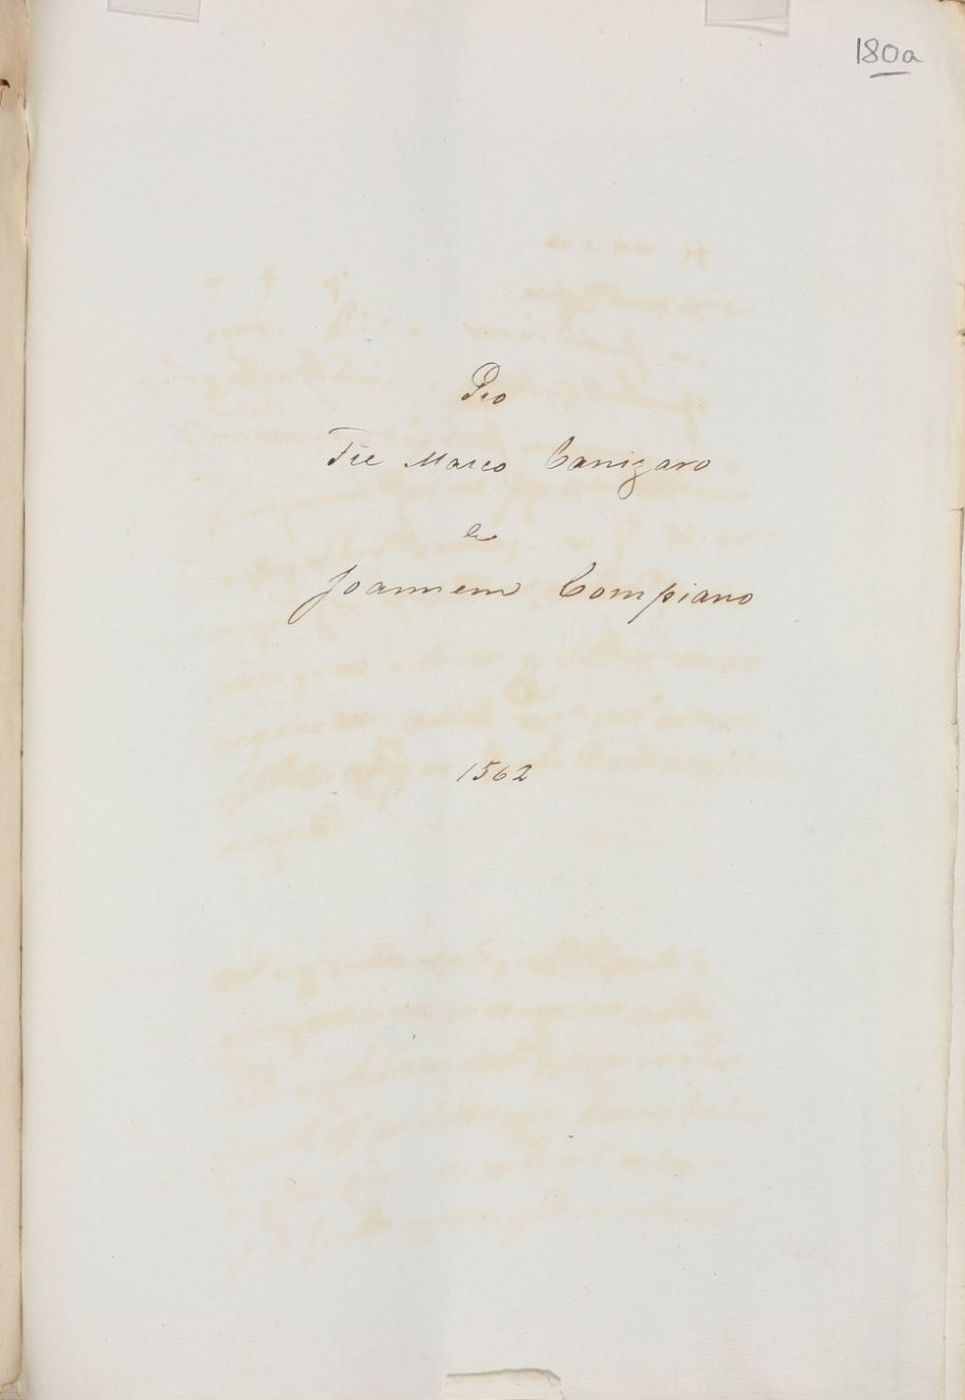 180a
Pro
Fre Marco Canizaro
e
Joannem Compiano
1562